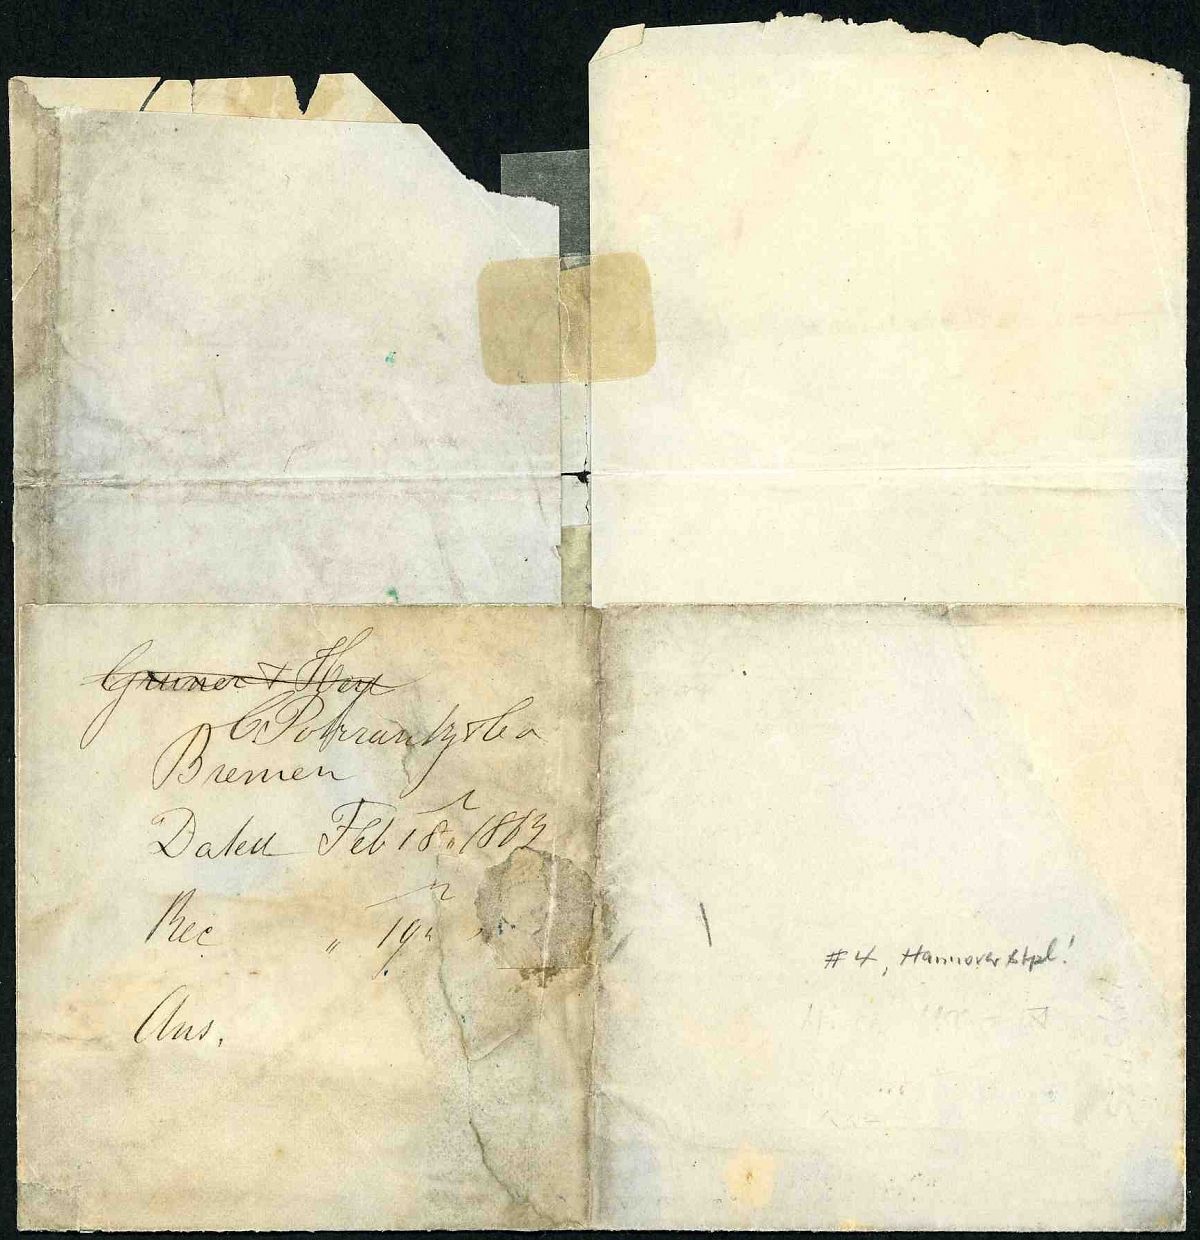 Gruner & Heye
C Pokrantz & Co
Bremen
Dated Feb 18" 1863
Rec " 19"
Ans.
#4, Hannover Stpl!